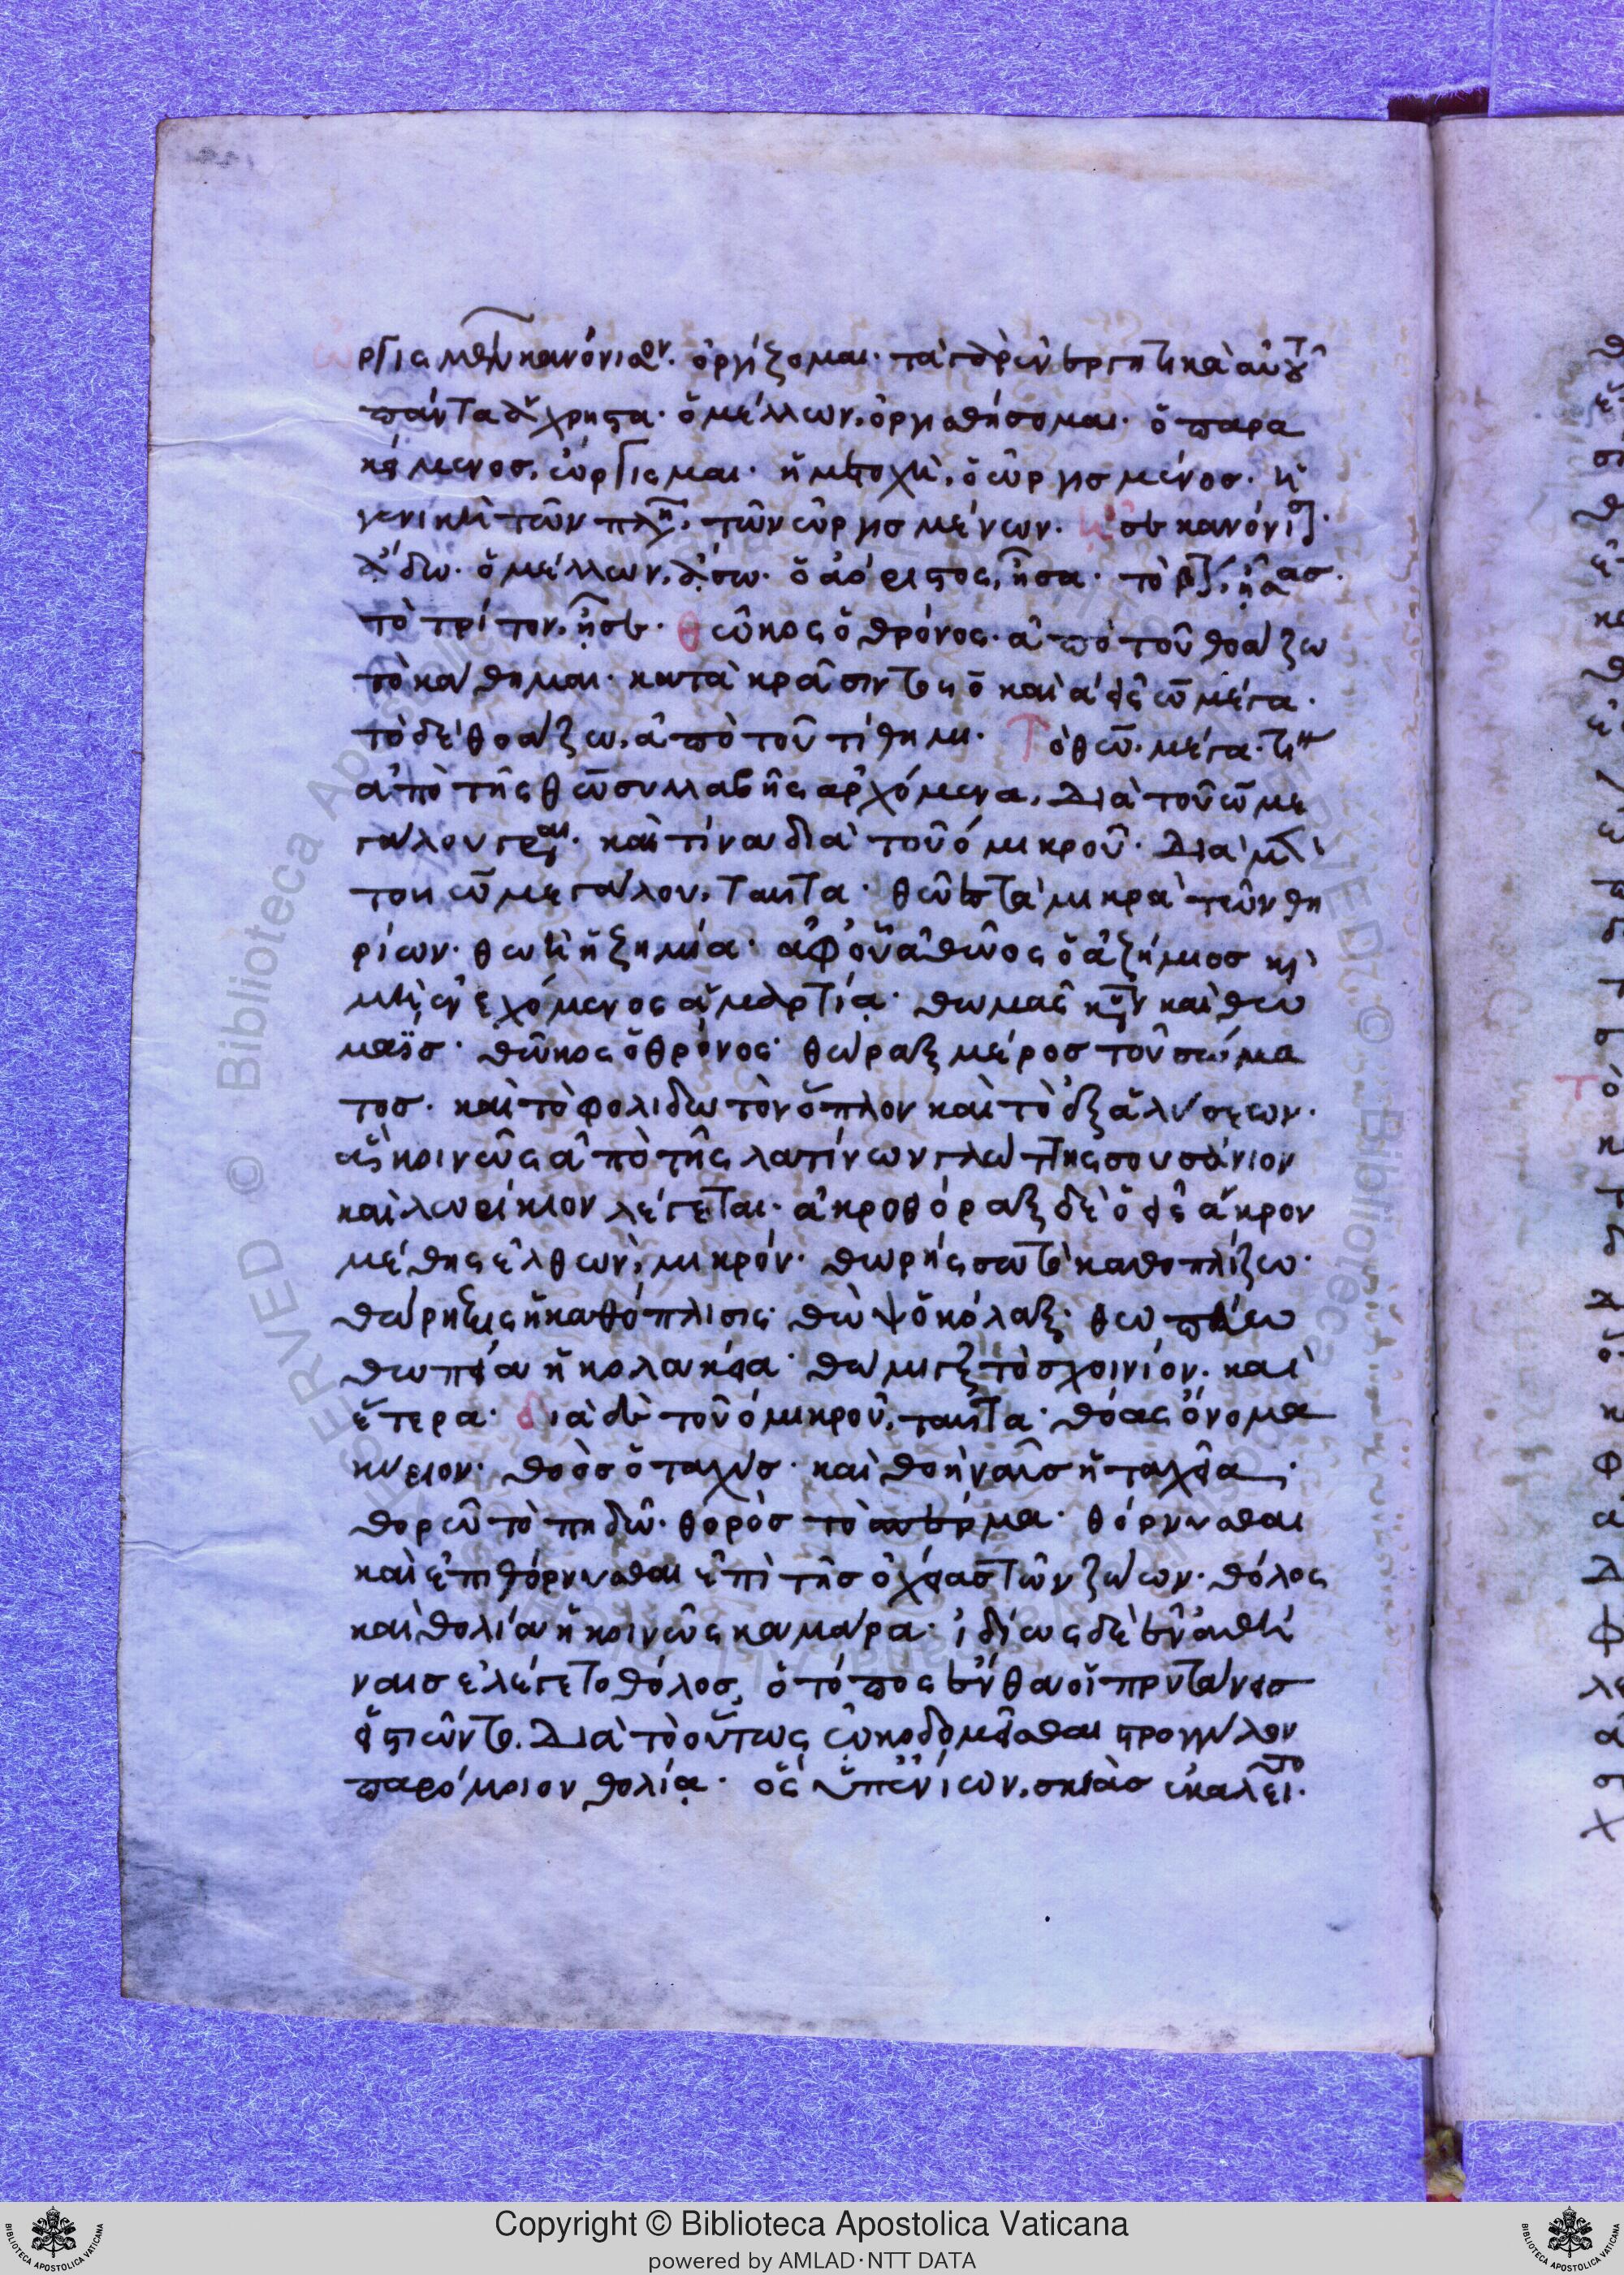 ὤργισμαι κανόνιον. ὀργίζομαι. τὰ γὰρ ἐνεργητικὰ αὐτοῦ
πάντα ἄχρηστα. ὁ μέλλων, ὀργισθήσομαι. ὁ παρα
κείμενος, ὤργισμαι. ἡ μετοχὴ, ὁ ὠργισμένος. ἡ
γενικὴ τῶν πληθ, τῶν ὠργισμένων. ᾖσε κανόνιον.
ᾄδω. ὁ μέλλων, ᾄσω. ὁ ἀόριστος, ᾖσα. τὸ β, ᾖσας.
τὸ τρίτον, ᾖσε. θῶκος ὁ θρόνος. ἀπὸ τοῦ θοάζω
τὸ κάθημαι. κατὰ κρᾶσιν τῆς ο καὶ α εἰς ω μέγα.
τὸ δὲ θοάζω, ἀπὸ τοῦ τίθημι. Τὸ θω μέγα. τὰ
ἀπὸ τῆς θω συλλαβῆς ἀρχόμενα, διὰ τοῦ ω με
γάλου γράφεται. καί τινα διὰ τοῦ ο μικροῦ. διὰ μὲν
τοῦ ω μεγάλου, ταῦτα. θῶες τὰ μικρὰ τῶν θη
ρίων. θωὴ ἡ ζημία. ἀφ' οὗ ἀθῶος ὁ ἀζήμιος καὶ
μὴ ἐνεχόμενος ἁμαρτίᾳ. θωμᾶς κύριον καὶ θω
μαΐς. θῶκος ὁ θρόνος. θώραξ μέρος τοῦ σώμα
τος. καὶ τὸ φολιδωτὸν ὅπλον καὶ τὸ ἐξ ἁλύσεων.
ὃς κοινῶς ἀπὸ τῆς λατίνων γλώττης σουσάνιον
καὶ λωρίκιον λέγεται. ἀκροθόραξ δὲ ὁ εἰς ἄκρον
μέθης ἐλθών, μικρόν. θωρήσσω τὸ καθοπλίζω.
θώρηξις ἡ καθόπλισις. θὼψ ὁ κόλαξ. θωπεύω
θωπεία ἡ κολακεία. θώμιγξ τὸ σχοινίον. καὶ
ἕτερα. διὰ δὲ τοῦ ο μικροῦ, ταῦτα. θόας ὄνομα
κύριον. θοὸς ὁ ταχύς. καὶ θοὴ ναῦς ἡ ταχεῖα.
θορῶ τὸ πηδῶ. θορὸς τὸ σπέρμα. θόρνυσθαι
καὶ ἐπιθόρνυσθαι ἐπὶ τῆς ὀχείας τῶν ζώων. θόλος
καὶ θολία ἡ κοινῶς καμάρα. ἰδίως δὲ ἐν ἀθή
ναις ἐλέγετο θόλος, ὁ τόπος ἔνθα οἱ πρυτάνεις
εἱστιῶντο. διὰ τὸ οὕτως ᾠκοδομεῖσθαι στρογγύλον
παρόμοιον θολίᾳ. ὃς ὑπ' ἐνίων, σκιὰς ἐκαλεῖτο.
Copyright © Biblioteca Apostolica Vaticana
powered by AMLAD·NTT DATA